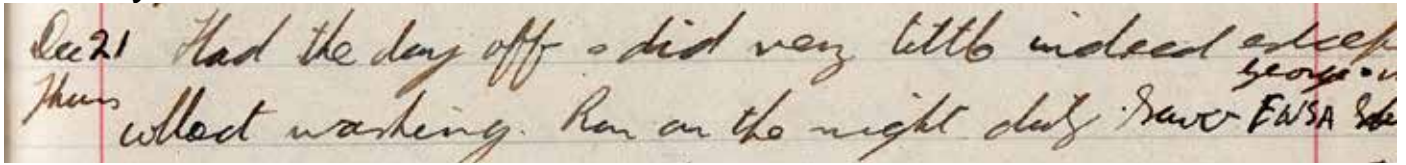 Dec 21 Had the day off & did very little indeed except
George
Thurs collect washing. Ran on the night duty. Saw ENSA